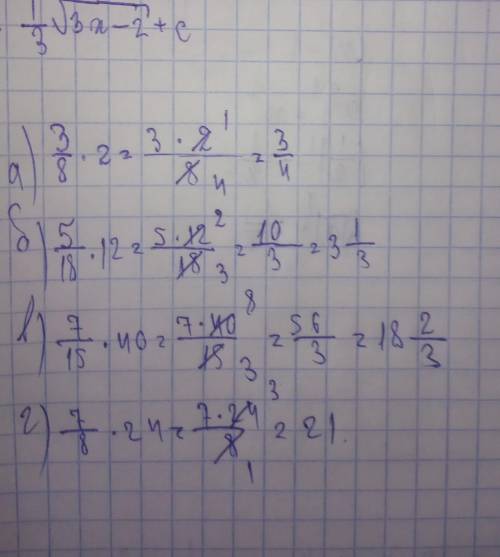 1/3 √3x-2 + c
а) 3/8 · 2 = 3 · 2 1/8 4 = 3/4
б) 5/18 · 12 = 5 · 12 2/18 3 = 10/3 = 3 1/3
в) 7/15 · 40 = 7 · 40 8/15 3 = 56/3 = 18 2/3
г) 7/8 · 24 = 7 · 24 3/8 1 = 21.